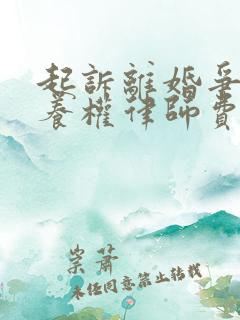 起訴離婚爭
養權律師費
崇蕭
未经同意禁止转载